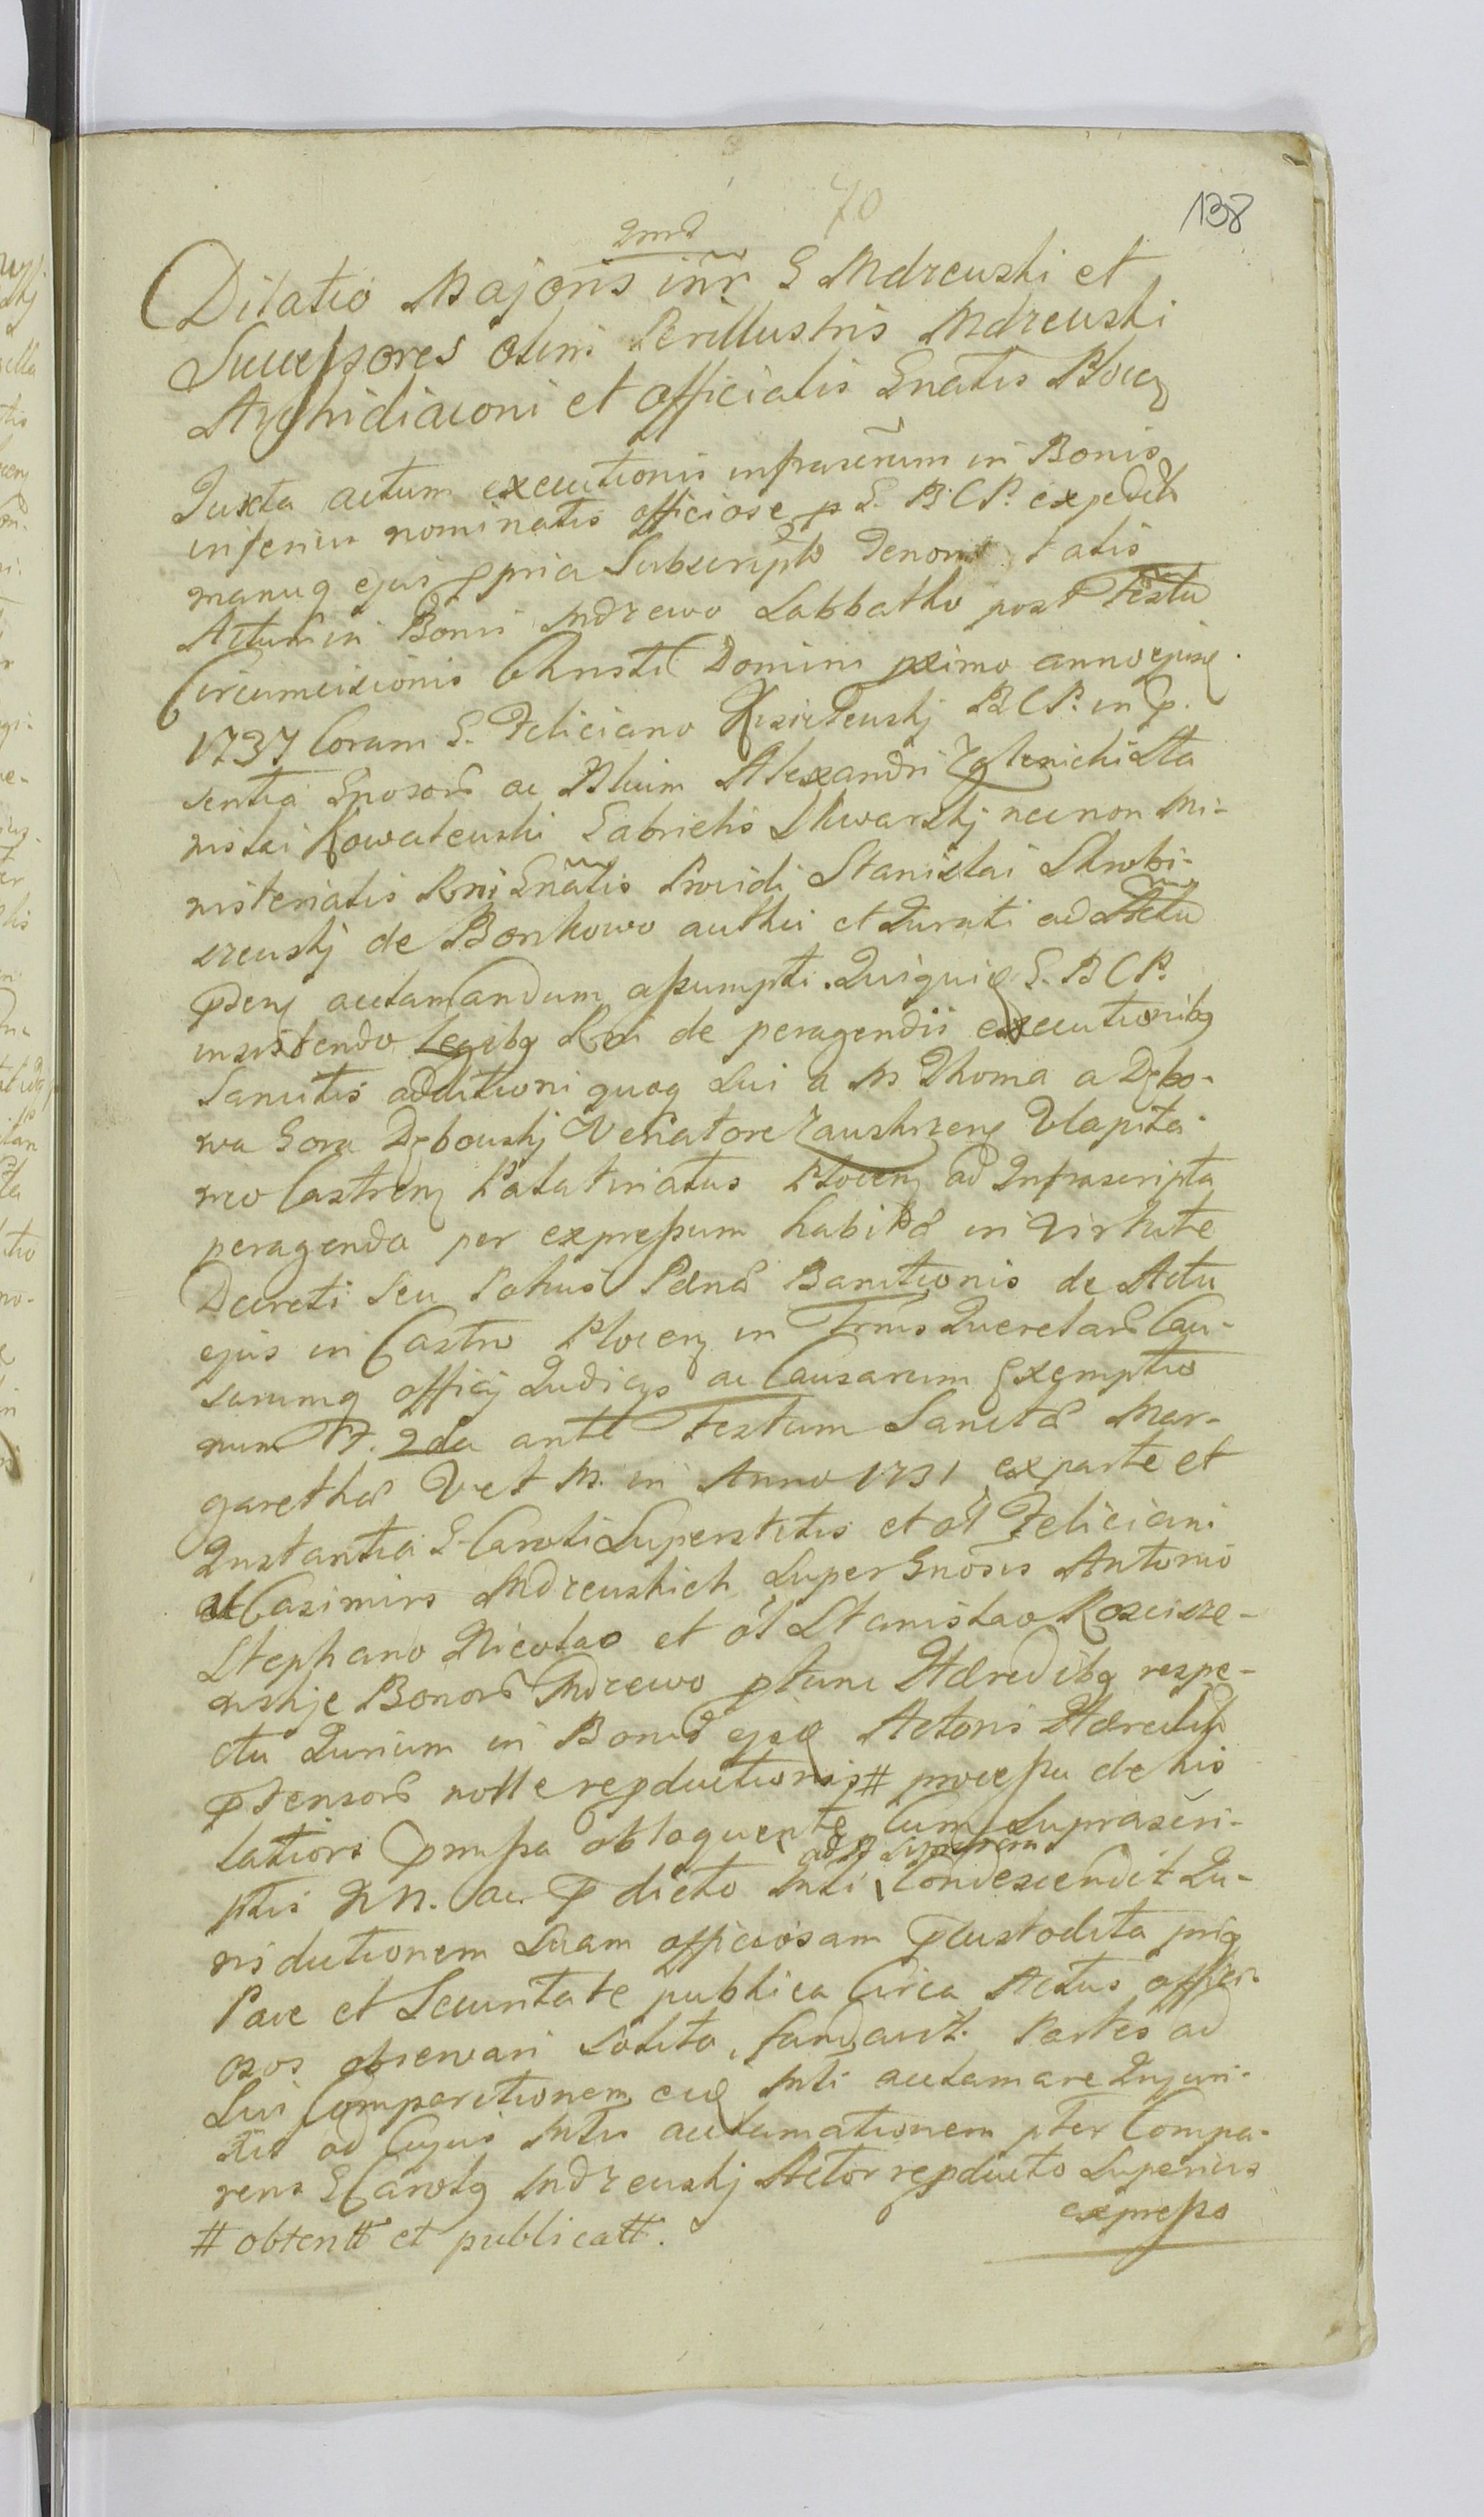 138
70
2md
Dilatio Majoris inr G Mdzewski et
Successores olim Perillustris Mdzewski
Archidiaconi et officialis Gnalis Plocen
Juxta actum executionis infrascrum in Bonis
inferius nominatis officiose p G. B.C.P. expedit
manuq ejus ppria Subscripto Tenoris talis
Actum in Bonis Mdzewo Sabbatho post Festu
Circumcisionis Christi Domini pximo anno ejusd
1737 Coram G. Feliciano BCP. in p
sentia Gnosor ac Nbium Alexandri Zglenicki Sta
nislai Kowalewski Gabrielis Skwarskj necnon Mi-
nisterialis Rni Gnalis Providi Stanislai
de Bonkowo authci et Jurati ad Actu
pden acclamandum assumpti. Quiquid G. B C P.
insistendo Legibq Rni de peragendis executionibq
Sancitis additioni quoq Sui a M Thoma a Dębo-
wa Gora Dębowskj Venatore Zawskrzen Vcapita-
neo Castren Palatinatus Plocen ad Infrascripta
peragenda per expressum habita in virtute
Decreti seu Potius Pænæ Banitionis de Actu
ejus in Castro Plocen in Trnis Querelar Cau-
sarumq officj Judicijs ac Causarum Exemptio
num F. 2da ante Festum Sanctæ Mar-
garethæ V et M. in Anno 1731 ex parte et
Instantia G Caroli Superstitis et ol Feliciani
et Casimiri Mdzewskich Super Gnosis Antonio
Stephano Nicolao et ol Stanislao Kosciesze-
wskje Bonor Mdzewo ptunc Hæredibq respe-
ctu Jurium in Bonis ejsd Actoris Hæredit
ptensor nolle repductionis # processu de his
latiori pmissa obloquente Cum Suprascri-
ad A
ptis NN. ac p dicto Mli Condescendit Ju-
risdictionem Suam officiosam pcustodita priq
Pace et Securitate publica Circa Actus offici-
osos observari solita, fundavit. Partes ad
Sui Comparitionem eid Mli acclamare Injun-
xit ad Cujus Mlis acclamationem pter Compa-
rens G Carolq Mdzewskj Actor repducto Superius
expresso
# obtentt et publicatt.